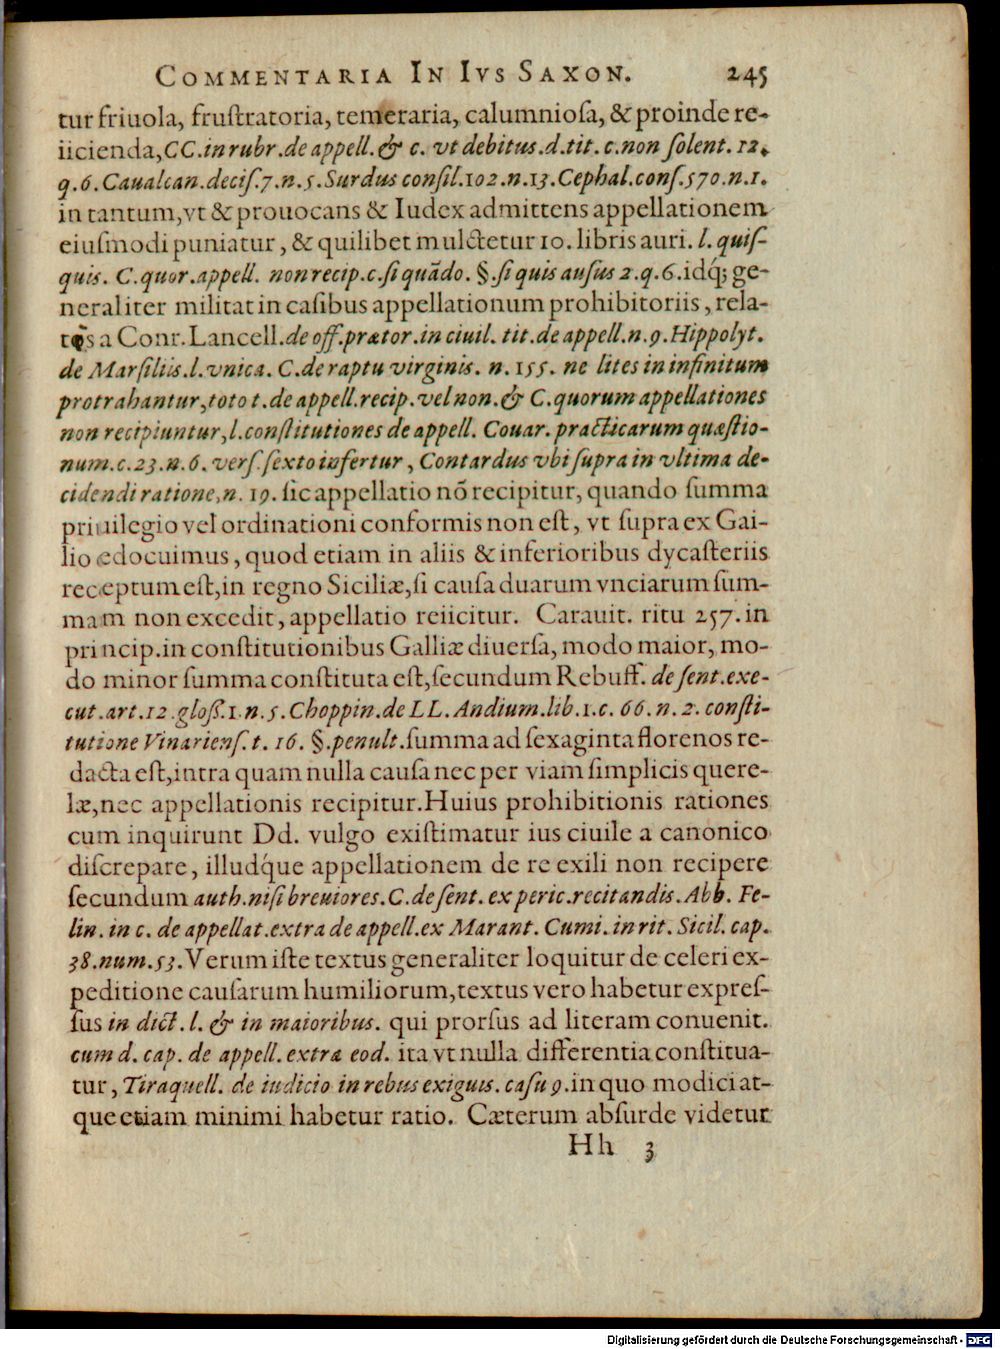 COMMENTARIA IN IVS SAXON. 245
tur friuola, fruſtratoria, temeraria, calumnioſa, & proinde re-
iicienda, CC. in rubr. de appell. & c. vt debitus. d. tit. c. non ſolent. 12.
q. 6. Caualcan. deciſ. 7. n. 5. Surdus conſil. 102. n. 13. Cephal. conſ. 570. n. 1.
in tantum, vt & prouocans & Iudex admittens appellationem
eiuſmodi puniatur, & quilibet mulctetur 10. libris auri. l. quiſ-
quis. C. quor. appell. non recip. c. ſi quādo. §. ſi quis auſus 2. q. 6. idq́; ge-
neraliter militat in caſibus appellationum prohibitoriis, rela-
tis a Conr. Lancell. de off. prætor. in ciuil. tit. de appell. n. 9. Hippolyt.
de Marſiliis. l. vnica. C. de raptu virginis. n. 155. ne lites in infinitum
protrahantur, toto t. de appell. recip. vel non. & C. quorum appellationes
non recipiuntur, l. conſtitutiones de appell. Couar. practicarum quæſtio-
num. c. 23. n. 6. verſ. ſexto infertur, Contardus vbi ſupra in vltima de-
cidendi ratione, n. 19. ſic appellatio nō recipitur, quando ſumma
priuilegio vel ordinationi conformis non eſt, vt ſupra ex Gai-
lio edocuimus, quod etiam in aliis & inferioribus dycaſteriis
receptum eſt, in regno Siciliæ, ſi cauſa duarum vnciarum ſum-
mam non excedit, appellatio reiicitur. Carauit. ritu 257. in
princip. in conſtitutionibus Galliæ diuerſa, modo maior, mo-
do minor ſumma conſtituta eſt, ſecundum Rebuff. de ſent. exe-
cut. art. 12. gloß. 1. n. 5. Choppin. de LL. Andium. lib. 1. c. 66. n. 2. conſti-
tutione Vinarienſ. t. 16. §. penult. ſumma ad ſexaginta florenos re-
dacta eſt, intra quam nulla cauſa nec per viam ſimplicis quere-
læ, nec appellationis recipitur. Huius prohibitionis rationes
cum inquirunt Dd. vulgo exiſtimatur ius ciuile a canonico
diſcrepare, illudq́ue appellationem de re exili non recipere
ſecundum auth. niſi breuiores. C. de ſent. ex peric. recitandis. Abb. Fe-
lin. in c. de appellat. extra de appell. ex Marant. Cumi. in rit. Sicil. cap.
38. num. 53. Verum iſte textus generaliter loquitur de celeri ex-
peditione cauſarum humiliorum, textus vero habetur expreſ-
ſus in dict. l. & in maioribus. qui prorſus ad literam conuenit.
cum d. cap. de appell. extra eod. ita vt nulla differentia conſtitua-
tur, Tiraquell. de iudicio in rebus exiguis. caſu 9. in quo modici at-
que etiam minimi habetur ratio. Cæterum abſurde videtur
Hh 3
Digitalisierung gefördert durch die Deutsche Forschungsgemeinschaft - DFG